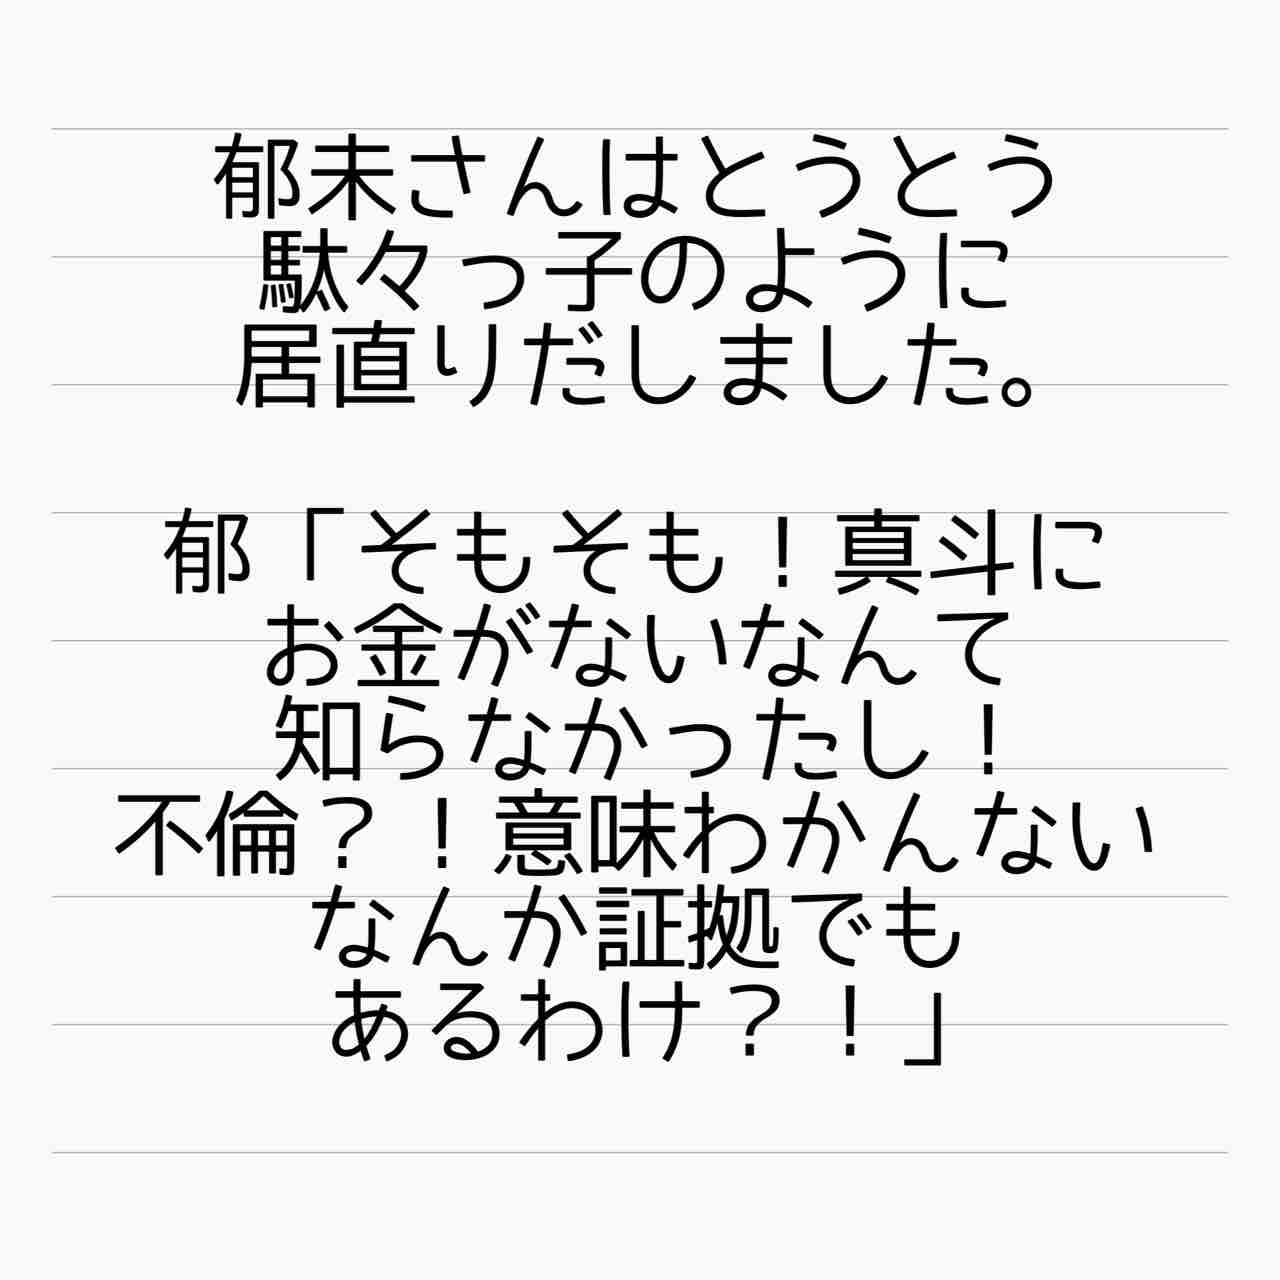 郁未さんはとうとう
駄々っ子のように
居直りだしました。
郁「そもそも！真斗に
お金がないなんて
知らなかったし！
不倫？！意味わかんない
なんか証拠でも
あるわけ？！」